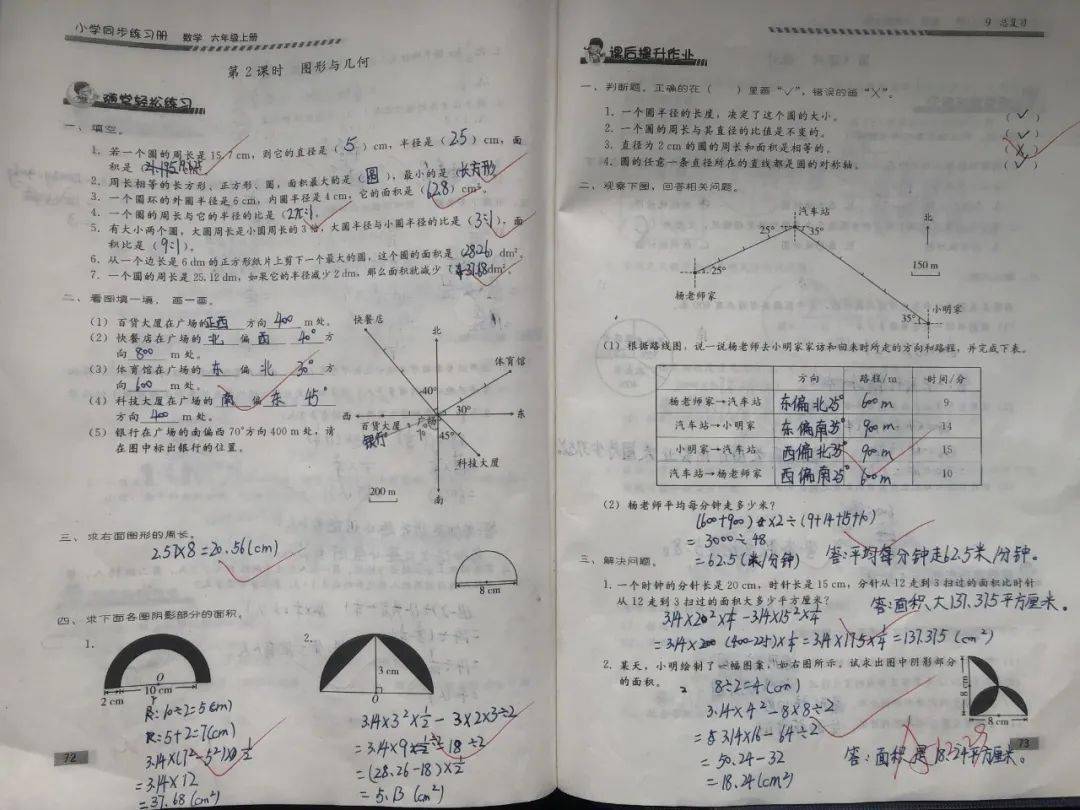 小学同步练习册 数学 六年级上册
第2课时 图形与几何
随堂轻松练习
一、填空。
1. 若一个圆的周长是15.7cm，则它的直径是（5）cm，半径是（2.5）cm，面
积是（
2. 周长相等的长方形、正方形、圆，面积最大的是（圆），最小的是（长方形
3. 一个圆环的外圆半径是6cm，内圆半径是4cm，它的面积是（62.8）cm²。
4. 一个圆的周长与它的半径的比是（2π:1）。
5. 有大小两个圆，大圆周长是小圆周长的3倍，大圆半径与小圆半径的比是（3:1），面
积比是（9:1）。
6. 从一个边长是6dm的正方形纸片上剪下一个最大的圆，这个圆的面积是（28.26）dm²。
7. 一个圆的周长是25.12dm，如果它的半径减少2dm，那么面积就减少（37.68）dm²。
二、看图填一填，画一画。
（1）百货大厦在广场的正西方向400m处。
（2）快餐店在广场的北偏西40°方
向800m处。
（3）体育馆在广场的东偏北30°方
向600m处。
（4）科技大厦在广场的南偏东45°
方向400m处。
（5）银行在广场的南偏西70°方向400m处，请
在图中标出银行的位置。
快餐店
北
体育馆
40°
30°
西
东
百货大厦
广场
银行
70°
45°
科技大厦
200m
南
三、求右面图形的周长。
2.57×8=20.56(cm)
8cm
四、求下面各图阴影部分的面积。
1.
O
2cm
10cm
r:10÷2=5(cm)
R:5+2=7(cm)
3.14×(7²-5²)×1/2
=3.14×12
=37.68(cm²)
2.
3cm
O
3.14×3²×1/2-3×2×3÷2
=3.14×9×1/2-18÷2
=(28.26-18)×1/2
=5.13(cm²)
72
9 总复习
课后提升作业
一、判断题。正确的在（ ）里画“√”，错误的画“×”。
1. 一个圆半径的长度，决定了这个圆的大小。（√）
2. 一个圆的周长与其直径的比值是不变的。（√）
3. 直径为2cm的圆的周长和面积是相等的。（×）
4. 圆的任意一条直径所在的直线都是圆的对称轴。（√）
二、观察下图，回答相关问题。
汽车站
北
25°
35°
150m
25°
杨老师家
小明家
35°
（1）根据路线图，说一说杨老师去小明家家访和回来时所走的方向和路程，并完成下表。
方向 路程/m 时间/分
杨老师家→汽车站 东偏北25° 600m 9
汽车站→小明家 东偏南35° 900m 14
小明家→汽车站 西偏北35° 900m 15
汽车站→杨老师家 西偏南25° 600m 10
（2）杨老师平均每分钟走多少米？
(600+900)×2÷(9+14+15+10)
=3000÷48
=62.5(米/分钟) 答:平均每分钟走62.5米/分钟。
三、解决问题。
1. 一个时钟的分针长是20cm，时针长是15cm，分针从12走到3扫过的面积比时针
从12走到3扫过的面积大多少平方厘米？
答:面积大137.375平方厘米。
3.14×20²×1/4-3.14×15²×1/4
=3.14×200(400-225)×1/4=3.14×175×1/4=137.375(cm²)
2. 某天，小明绘制了一幅图案，如右图所示。试求出图中阴影部分
的面积。
8÷2=4(cm)
3.14×4²-8×8÷2
=3.14×16-64÷2
=50.24-32
=18.24(cm²)
8cm
8cm
答:面积是18.24平方厘米。
73